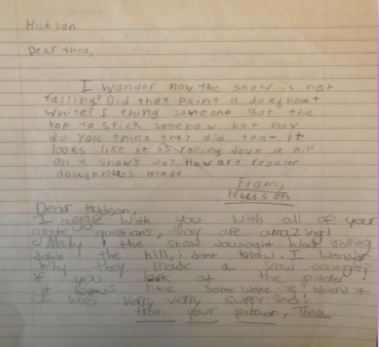 Hudson
Dear Thea,
I wonder how the snow is not
falling? Did that paint a doughnut
white? I thing someone got the
top to stick somehow but how
do you think they did that It
looks like it is rolling down a hill
on a snowy day How are regular
doughnuts made.
From,
Hudson
Dear Hudson,
I agge with you with all of your
grate qustions, they are amazing!
Maby the snow dounught was rolling
down the hill, i dont know. I wonder
why they made a snow dounught
if you look at the poster
It looks like some wone is behind it
I was very, very supprised!
from your patner, Thea